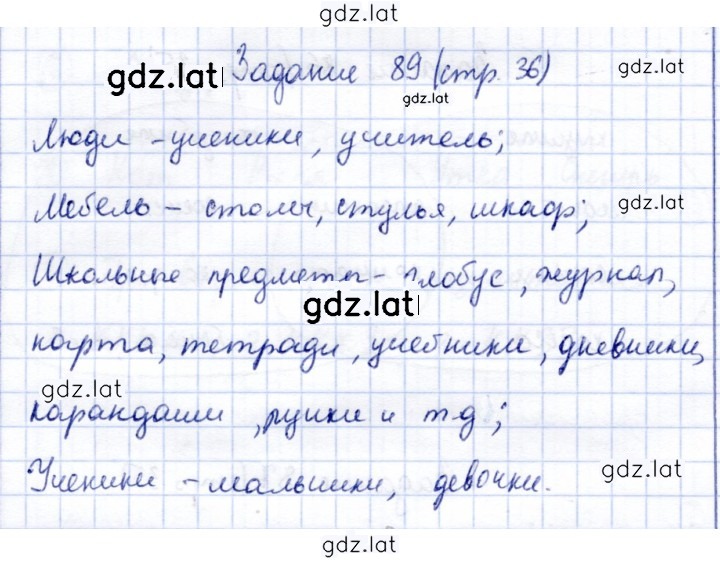 gdz.lat
gdz.lat Задание 89 (стр. 36) gdz.lat
gdz.lat
Люди - ученики, учитель;
Мебель - столы, стулья, шкаф; gdz.lat
Школьные предметы - глобус, журнал,
gdz.lat
карта, тетради, учебники, дневники,
gdz.lat
карандаши, ручки и т.д;
Ученики - мальчики, девочки. gdz.lat
gdz.lat